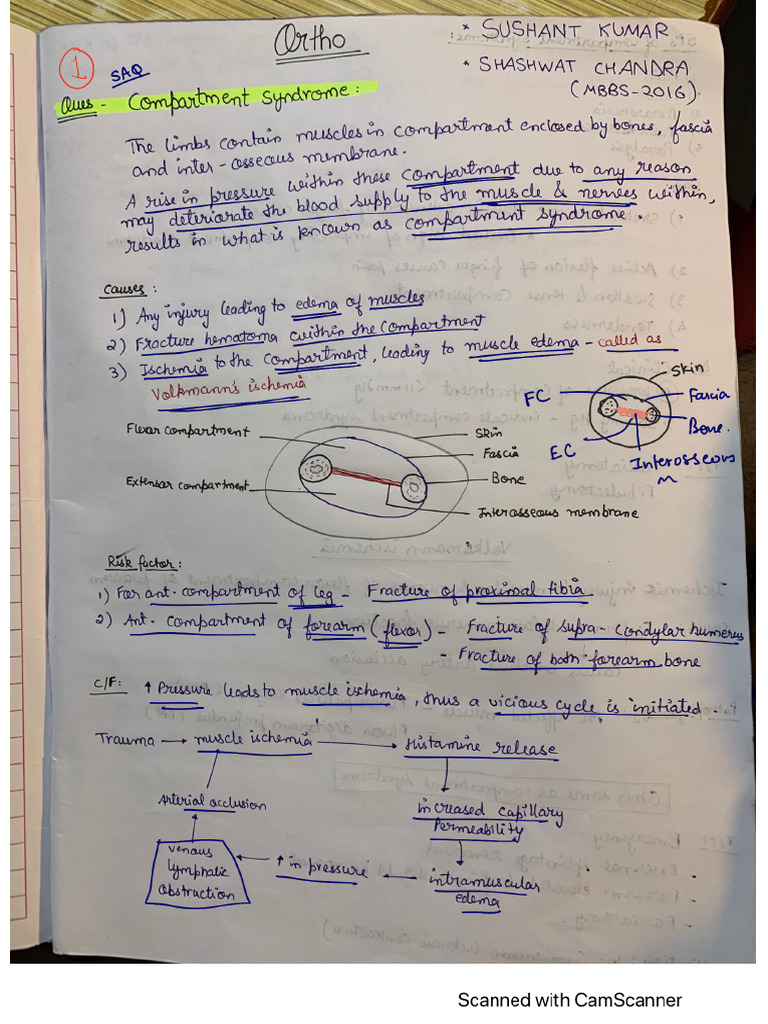 Ortho
* SUSHANT KUMAR
* SHASHWAT CHANDRA
(MBBS-2016).
1
SAQ
Ques - Compartment Syndrome :
The limbs contain muscles in compartment enclosed by bones, fascia
and inter-osseous membrane.
A rise in pressure within these compartment due to any reason
may deteriorate the blood supply to the muscle & nerves within,
results in what is known as compartment syndrome.
Causes :
1) Any injury leading to edema of muscles
2) Fracture hematoma within the compartment
3) Ischemia to the compartment, leading to muscle edema - called as
Volkmann's ischemia
Skin
FC
Fascia
Bone.
EC
Interosseous
m
Flexar compartment
Skin
Fascia
Extensar compartment
Bone
Interosseous membrane
Risk factor :
1) For ant. compartment of leg - Fracture of proximal tibia
2) Ant. compartment of forearm (flexor) - Fracture of supra-condylar humerus
- Fracture of both forearm bone
C/F: ↑ Pressure leads to muscle ischemia, thus a vicious cycle is initiated.
Trauma → muscle ischemia → Histamine release
Arterial occlusion
increased capillary
Permeability
venous
lymphatic
obstruction
↑ in pressure
intramuscular
edema
Scanned with CamScanner